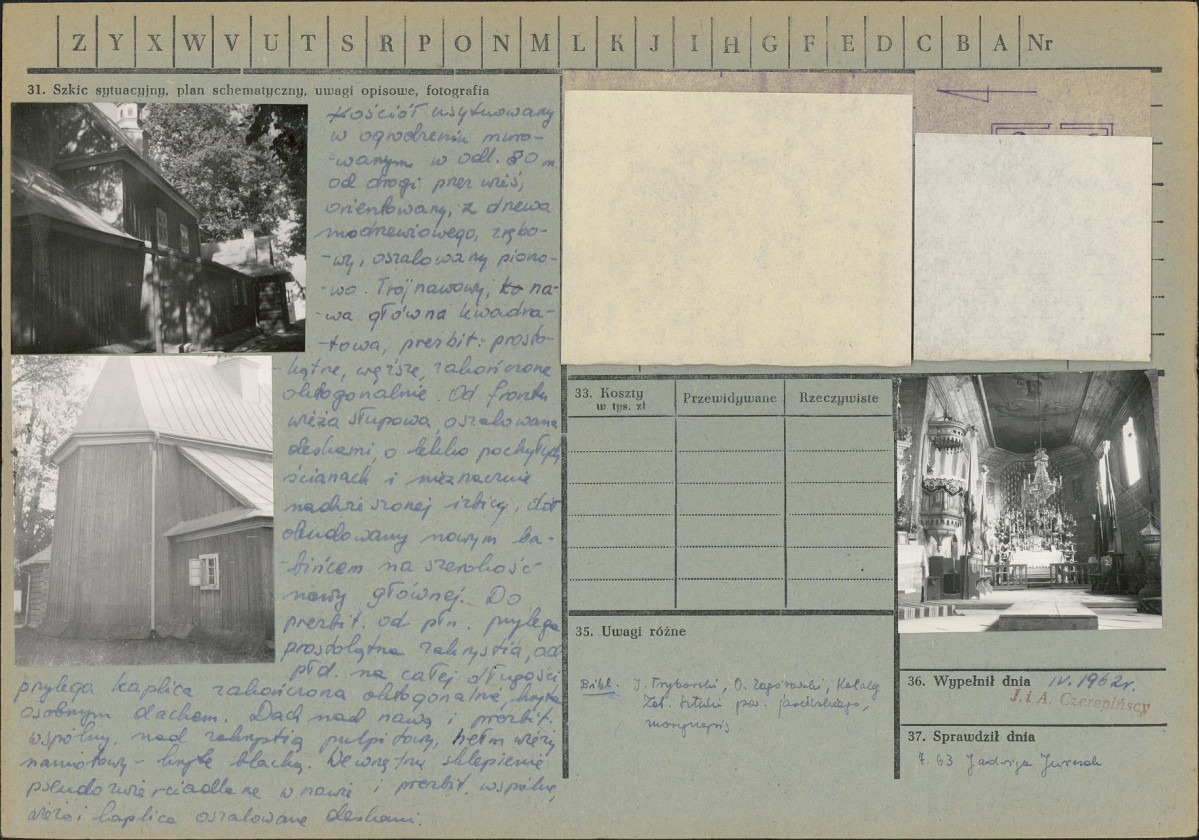 Z Y X W V U T S R P O N M L K J I H G F E D C B A Nr
31. Szkic sytuacyjny, plan schematyczny, uwagi opisowe, fotografia
Kościół usytuowany
w ogrodzeniu muro-
-wanym w odl. 80 m.
od drogi przez wieś,
orientowany, z drewa
modrzewiowego, zrębo-
-wy, oszalowany piono-
-wo. Trójnawowy, na-
-wa główna kwadra-
-towa, prezbit: prosto-
kątne, węższe, zakończone
oktogonalnie. Od frontu
wieża słupowa, oszalowana
deskami, o lekko pochyłych
ścianach i nieznacznie
nadwieszonej izbicy, dół
obudowany nowym ba-
-bińcem na szerokość
nawy głównej. Do
prezbit. od płn. przylega
prostokątna zakrystia, od
płd. na całej długości
przylega kaplica zakończona oktogonalnie, kryta
osobnym dachem. Dach nad nawą i prezbit.
wspólny, nad zakrystią pulpitowy, hełm wieży
namiotowy - kryte blachą. Wewnątrz sklepienie
pseudozwierciadlane w nawie i prezbit. wspólne,
wieża i kaplica oszalowane deskami.
33. Koszty
w tys. zł
Przewidywane
Rzeczywiste
35. Uwagi różne
Bibl. J. Tryborski, O. Zagórowski, Katalog
Zab. Sztuki pow. jasielskiego,
36. Wypełnił dnia IV. 1962r.
J. i A. Czerepińscy
37. Sprawdził dnia
63 Jadwiga